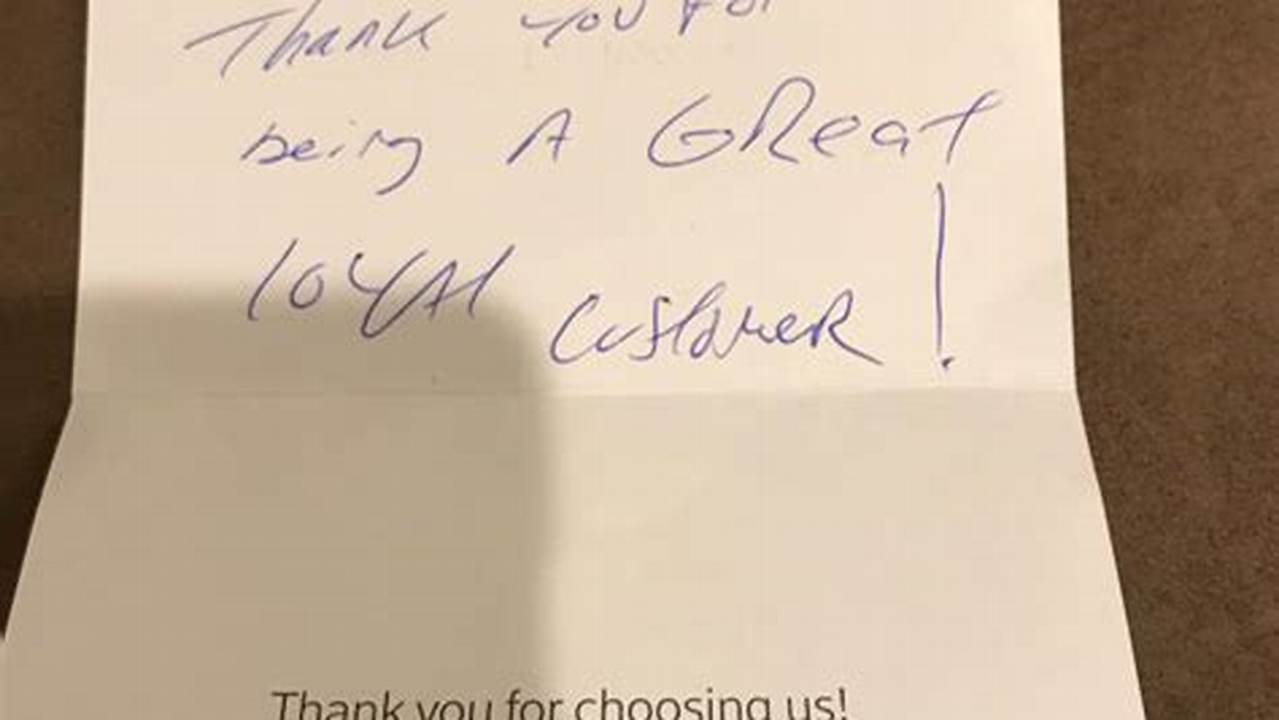 Thank you for
being A GReat
loyAl customeR!
Thank you for choosing us!